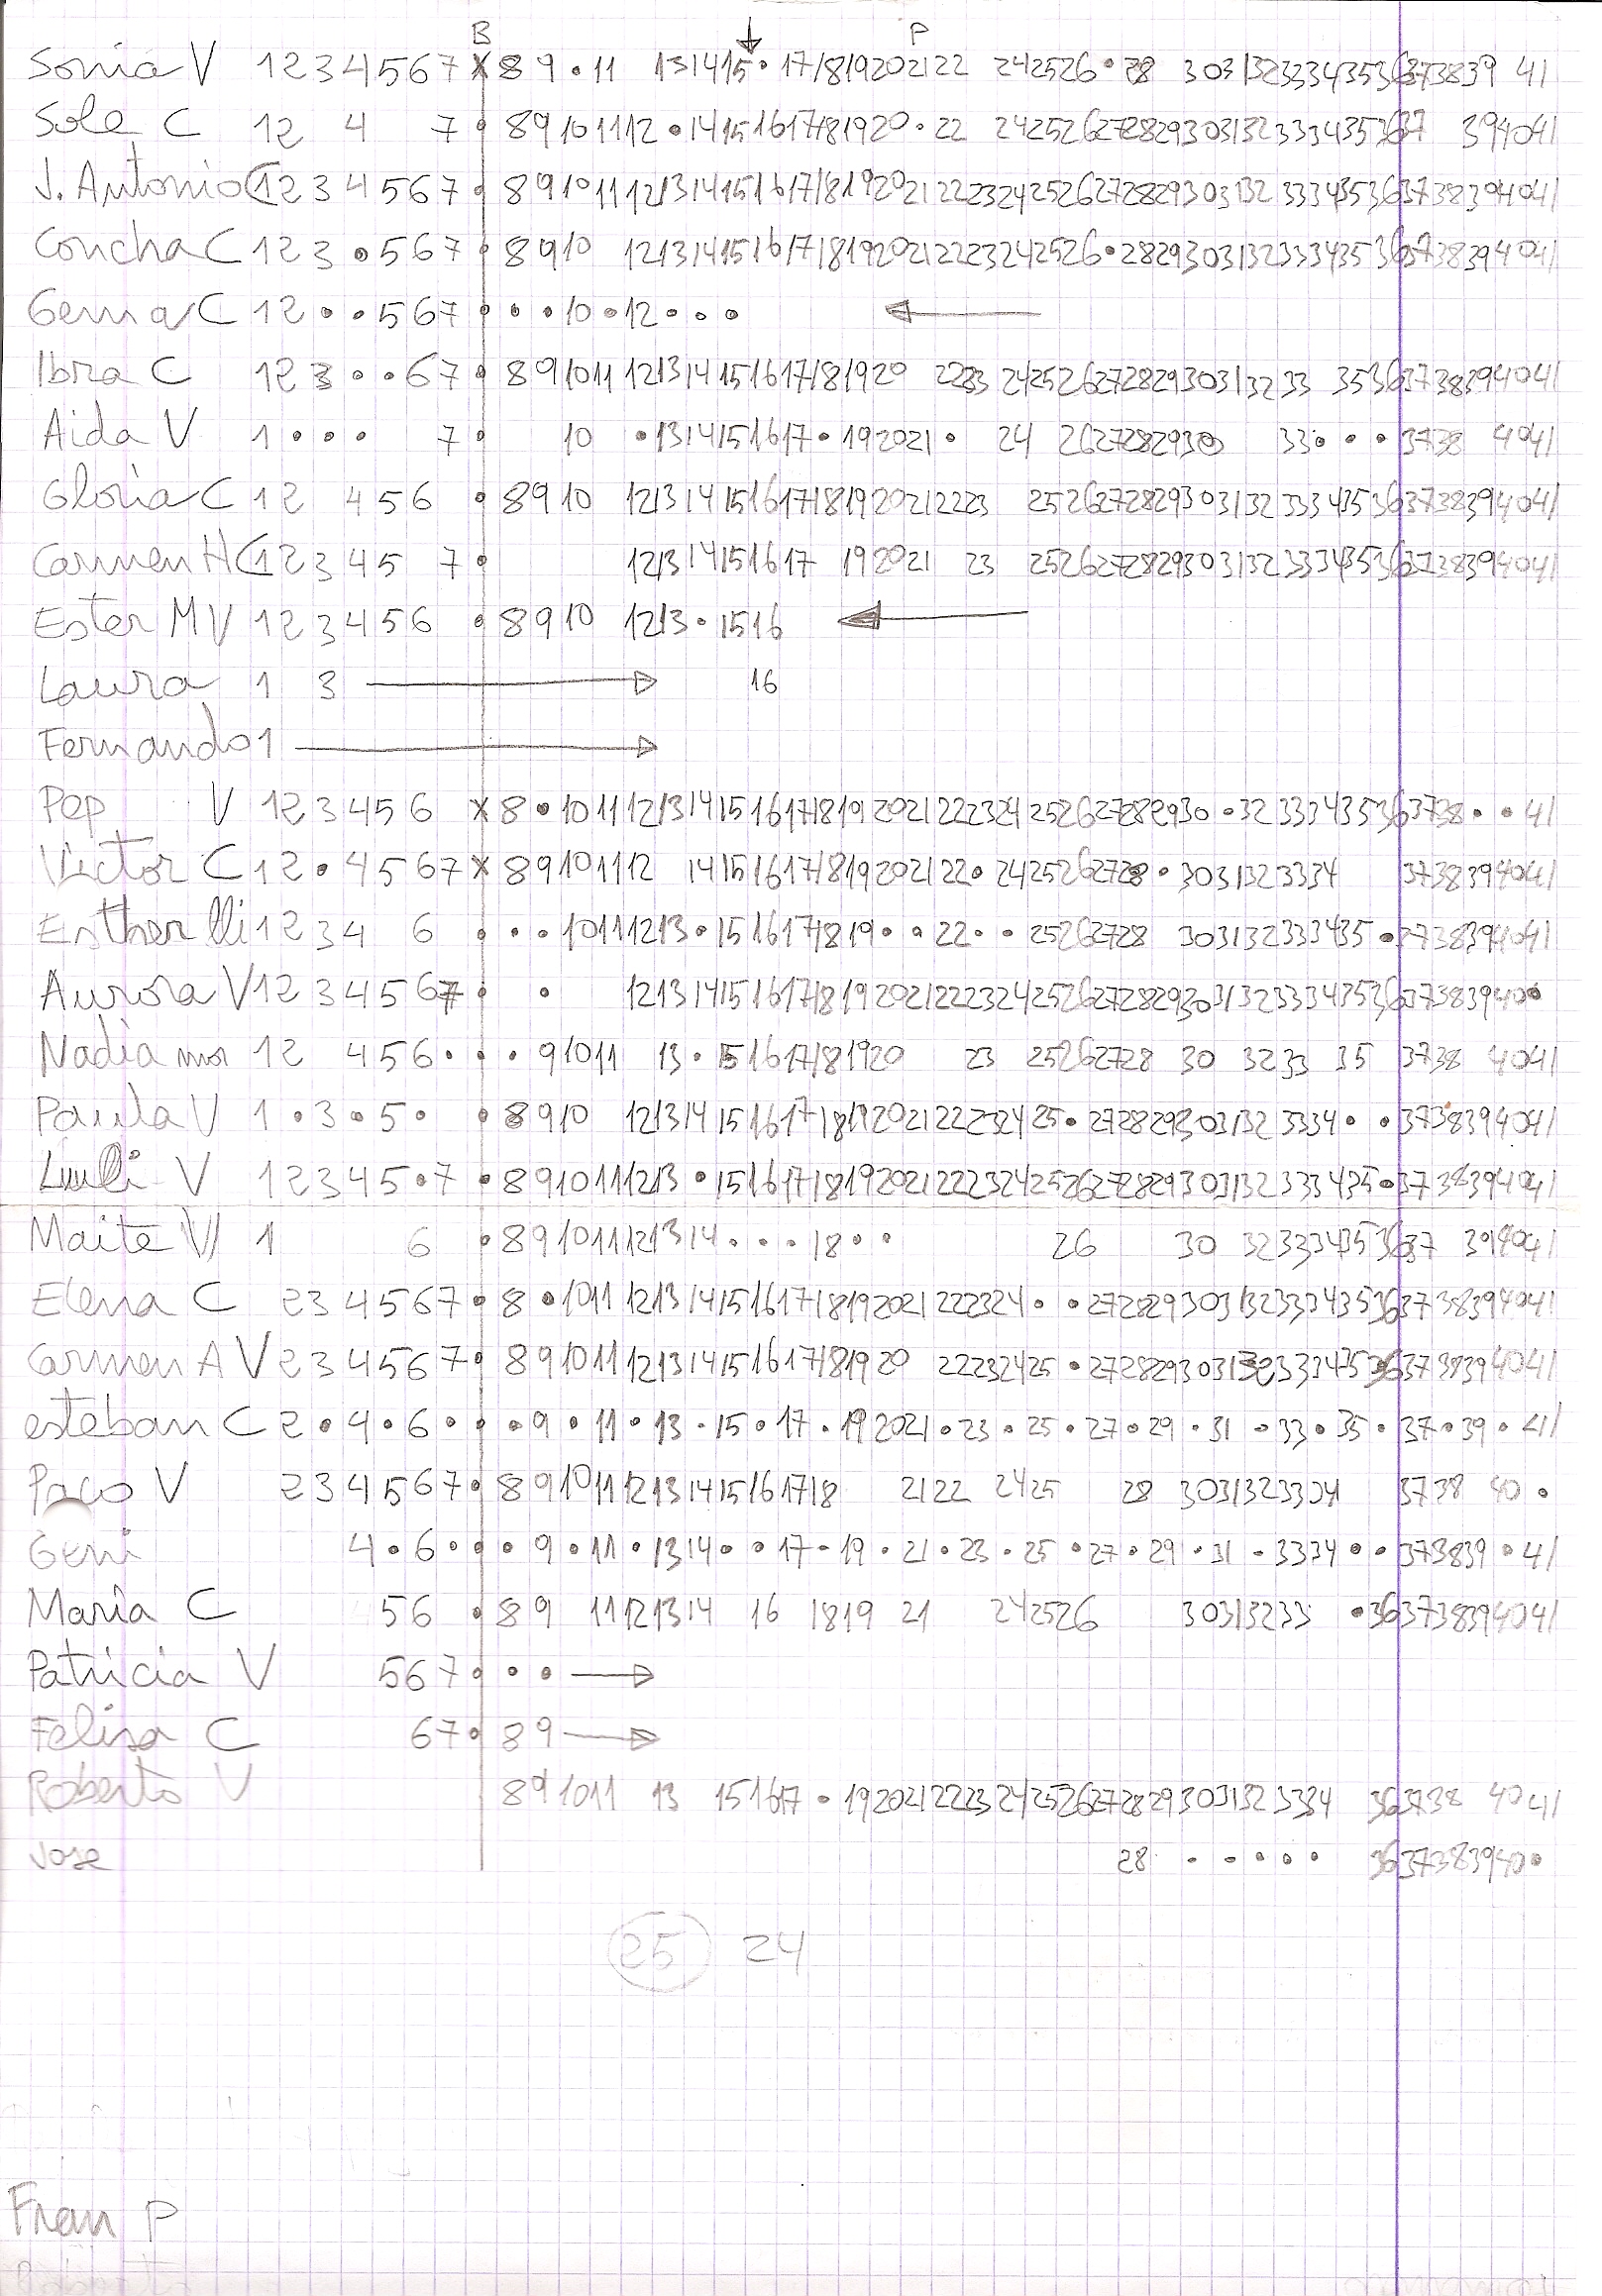 B ↓ P
Sonia V 1 2 3 4 5 6 7 x 8 9 • 11 13 14 15 • 17 18 19 20 21 22 24 25 26 • 28 30 31 32 33 34 35 36 37 38 39 41
Sole C 1 2 4 7 • 8 9 10 11 12 • 14 15 16 17 18 19 20 • 22 24 25 26 27 28 29 30 31 32 33 34 35 36 37 39 40 41
J. Antonio C 1 2 3 4 5 6 7 • 8 9 10 11 12 13 14 15 16 17 18 19 20 21 22 23 24 25 26 27 28 29 30 31 32 33 34 35 36 37 38 39 40 41
Concha C 1 2 3 • 5 6 7 • 8 9 10 12 13 14 15 16 17 18 19 20 21 22 23 24 25 26 • 28 29 30 31 32 33 34 35 36 37 38 39 40 41
Gema C 1 2 • • 5 6 7 • • • 10 • 12 • • • ←
Ibra C 1 2 3 • • 6 7 • 8 9 10 11 12 13 14 15 16 17 18 19 20 22 23 24 25 26 27 28 29 30 31 32 33 35 36 37 38 39 40 41
Aida V 1 • • • 7 • 10 • 13 14 15 16 17 • 19 20 21 • 24 26 27 28 29 30 33 • • • 37 38 40 41
Gloria C 1 2 4 5 6 • 8 9 10 12 13 14 15 16 17 18 19 20 21 22 23 25 26 27 28 29 30 31 32 33 34 35 36 37 38 39 40 41
Carmen H C 1 2 3 4 5 7 • 12 13 14 15 16 17 19 20 21 23 25 26 27 28 29 30 31 32 33 34 35 36 37 38 39 40 41
Ester M V 1 2 3 4 5 6 • 8 9 10 12 13 • 15 16 ←
Laura 1 3 → 16
Fernando 1 →
Pep V 1 2 3 4 5 6 x 8 • 10 11 12 13 14 15 16 17 18 19 20 21 22 23 24 25 26 27 28 29 30 • 32 33 34 35 36 37 38 • • 41
Victor C 1 2 • 4 5 6 7 x 8 9 10 11 12 14 15 16 17 18 19 20 21 22 • 24 25 26 27 28 • 30 31 32 33 34 37 38 39 40 41
Esther lli 1 2 3 4 6 • • • 10 11 12 13 • 15 16 17 18 19 • • 22 • • 25 26 27 28 30 31 32 33 34 35 • 37 38 39 40 41
Aurora V 1 2 3 4 5 6 7 • • 12 13 14 15 16 17 18 19 20 21 22 23 24 25 26 27 28 29 30 31 32 33 34 35 36 37 38 39 40 •
Nadia mor 1 2 4 5 6 • • • 9 10 11 13 • 15 16 17 18 19 20 23 25 26 27 28 30 32 33 35 37 38 40 41
Paula V 1 • 3 • 5 • • 8 9 10 12 13 14 15 16 17 18 19 20 21 22 23 24 25 • 27 28 29 30 31 32 33 34 • • 37 38 39 40 41
V 1 2 3 4 5 • 7 • 8 9 10 11 12 13 • 15 16 17 18 19 20 21 22 23 24 25 26 27 28 29 30 31 32 33 34 35 • 37 38 39 40 41
Maite V 1 6 • 8 9 10 11 12 13 14 • • • 18 • • 26 30 32 33 34 35 36 37 39 40 41
Elena C 2 3 4 5 6 7 • 8 • 10 11 12 13 14 15 16 17 18 19 20 21 22 23 24 • • 27 28 29 30 31 32 33 34 35 36 37 38 39 40 41
Carmen A V 2 3 4 5 6 7 • 8 9 10 11 12 13 14 15 16 17 18 19 20 22 23 24 25 • 27 28 29 30 31 32 33 34 35 36 37 38 39 40 41
esteban C 2 • 4 • 6 • • • 9 • 11 • 13 • 15 • 17 • 19 20 21 • 23 • 25 • 27 • 29 • 31 • 33 • 35 • 37 • 39 • 41
Paco V 2 3 4 5 6 7 • 8 9 10 11 12 13 14 15 16 17 18 21 22 24 25 28 30 31 32 33 34 37 38 40 •
Geni 4 • 6 • • • 9 • 11 • 13 14 • • 17 • 19 • 21 • 23 • 25 • 27 • 29 • 31 • 33 34 • • 37 38 39 • 41
Maria C 5 6 • 8 9 11 12 13 14 16 18 19 21 24 25 26 30 31 32 33 • 36 37 38 39 40 41
Patricia V 5 6 7 • • • →
Felisa C 6 7 • 8 9 →
Roberto V 8 9 10 11 13 15 16 17 • 19 20 21 22 23 24 25 26 27 28 29 30 31 32 33 34 36 37 38 40 41
Jose 28 • • • • • 36 37 38 39 40 •
25 24
Fran P